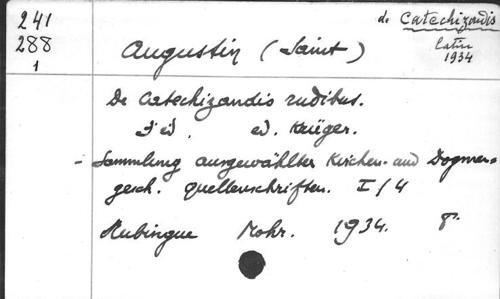 241
288
1
de Catechizandis
latin
1934
Augustin (Saint)
De Catechizandis rudibus.
3e éd. ed. Krüger.
- Sammlung ausgewählter Kirchen- und Dogmen-
gesch. quellenschriften. I/4
Tubingue Mohr. 1934. 8°.